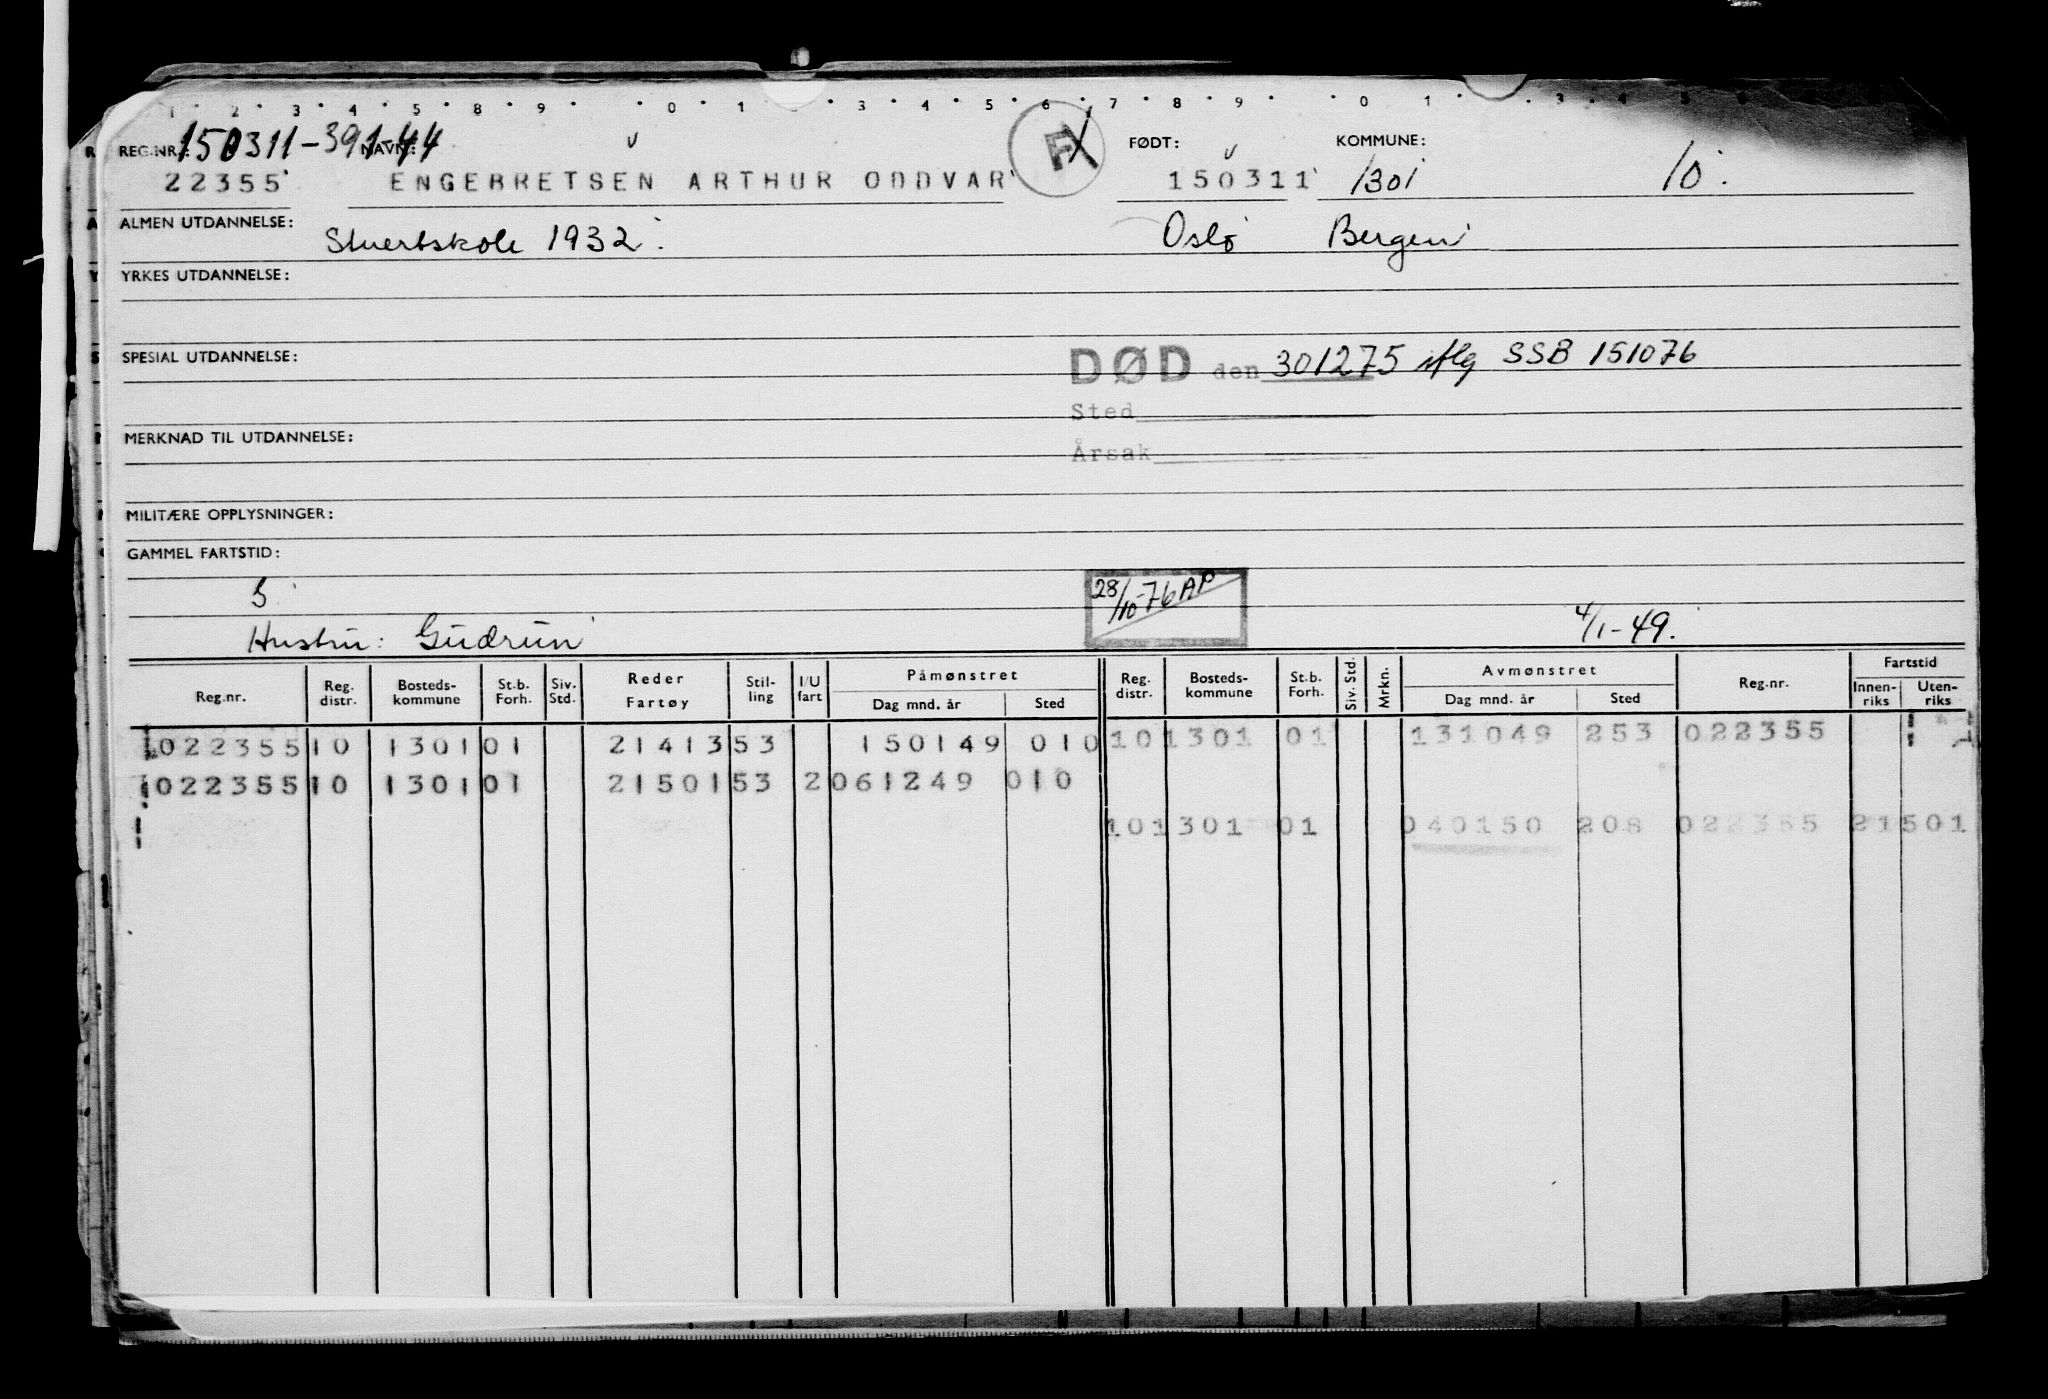 1 2 3 4 5 8 9 0 1 3 4 5 6 7 8 9 0 1 3 4 5
REG.NR.: 150311-39144 NAVN: FØDT: KOMMUNE:
22355 ENGEBRETSEN ARTHUR ODDVAR F 150311 1301 10.
ALMEN UTDANNELSE: Stuertskole 1932. Oslo Bergen
YRKES UTDANNELSE:
SPESIAL UTDANNELSE: DØD den 301275 iflg SSB 151076
Sted
MERKNAD TIL UTDANNELSE:
Årsak
MILITÆRE OPPLYSNINGER:
GAMMEL FARTSTID:
5 28/10-76 AP
Hustru: Gudrun 4/1-49.
Reg.nr. Reg. distr. Bosteds-kommune St.b. Forh. Siv. Std. Reder Fartøy Stil-ling I/U fart Påmønstret Dag mnd. år Sted Reg. distr. Bosteds-kommune St.b. Forh. Siv. Std. Mrkn. Avmønstret Dag mnd. år Sted Reg.nr. Fartstid Innen-riks Uten-riks
022355 10 1301 01 21413 53 150149 010 10 1301 01 131049 253 022355
022355 10 1301 01 21501 53 2 061249 010
10 1301 01 040150 208 022355 21501